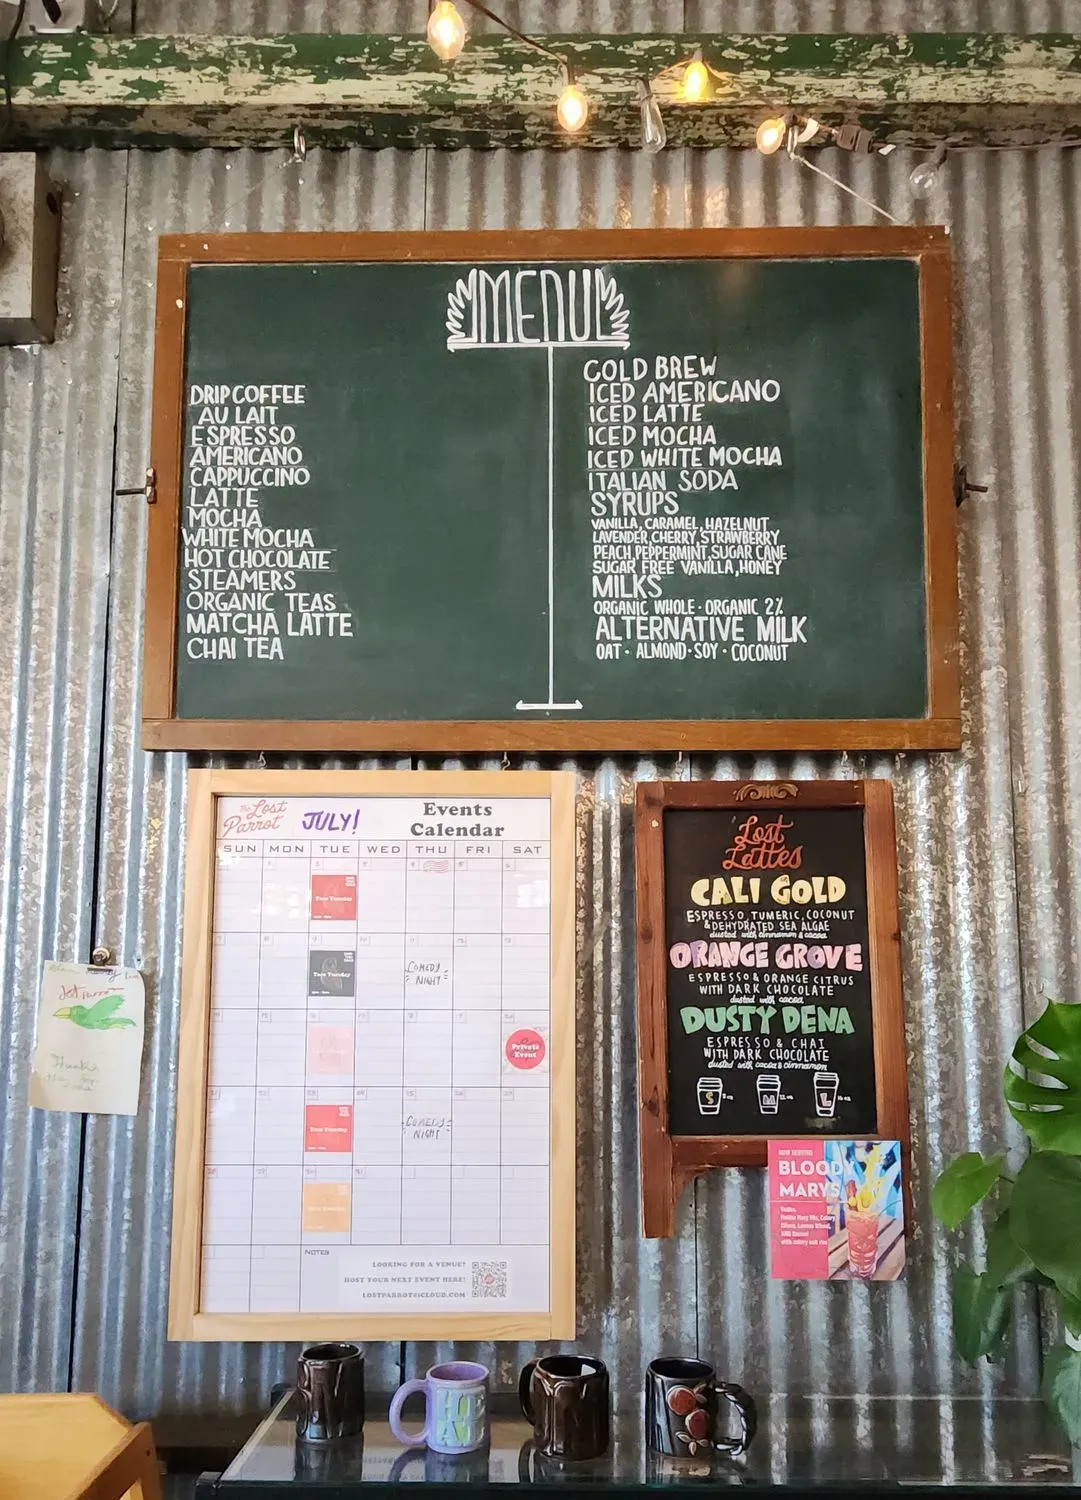 MENU
DRIP COFFEE
AU LAIT
ESPRESSO
AMERICANO
CAPPUCCINO
LATTE
MOCHA
WHITE MOCHA
HOT CHOCOLATE
STEAMERS
ORGANIC TEAS
MATCHA LATTE
CHAI TEA
COLD BREW
ICED AMERICANO
ICED LATTE
ICED MOCHA
ICED WHITE MOCHA
ITALIAN SODA
SYRUPS
VANILLA, CARAMEL, HAZELNUT
LAVENDER, CHERRY, STRAWBERRY
PEACH, PEPPERMINT, SUGAR CANE
SUGAR FREE VANILLA, HONEY
MILKS
ORGANIC WHOLE · ORGANIC 2%
ALTERNATIVE MILK
OAT · ALMOND · SOY · COCONUT
The Lost
Parrot
JULY!
Events
Calendar
SUN MON TUE WED THU FRI SAT
Taco Tuesday
Taco Tuesday
COMEDY
NIGHT
Private
Event
Taco Tuesday
COMEDY
NIGHT
NOTES
LOOKING FOR A VENUE?
HOST YOUR NEXT EVENT HERE!
LOSTPARROT@ICLOUD.COM
Lost
Lattes
CALI GOLD
ESPRESSO, TUMERIC, COCONUT
& DEHYDRATED SEA ALGAE
dusted with cinnamon & cacao
ORANGE GROVE
ESPRESSO & ORANGE CITRUS
WITH DARK CHOCOLATE
dusted with cacao
DUSTY DENA
ESPRESSO & CHAI
WITH DARK CHOCOLATE
dusted with cacao & cinnamon
S M 12 oz L 16 oz
NOW SERVING
BLOODY
MARYS
Vodka,
with celery salt rim
Lost Parrot
Thanks